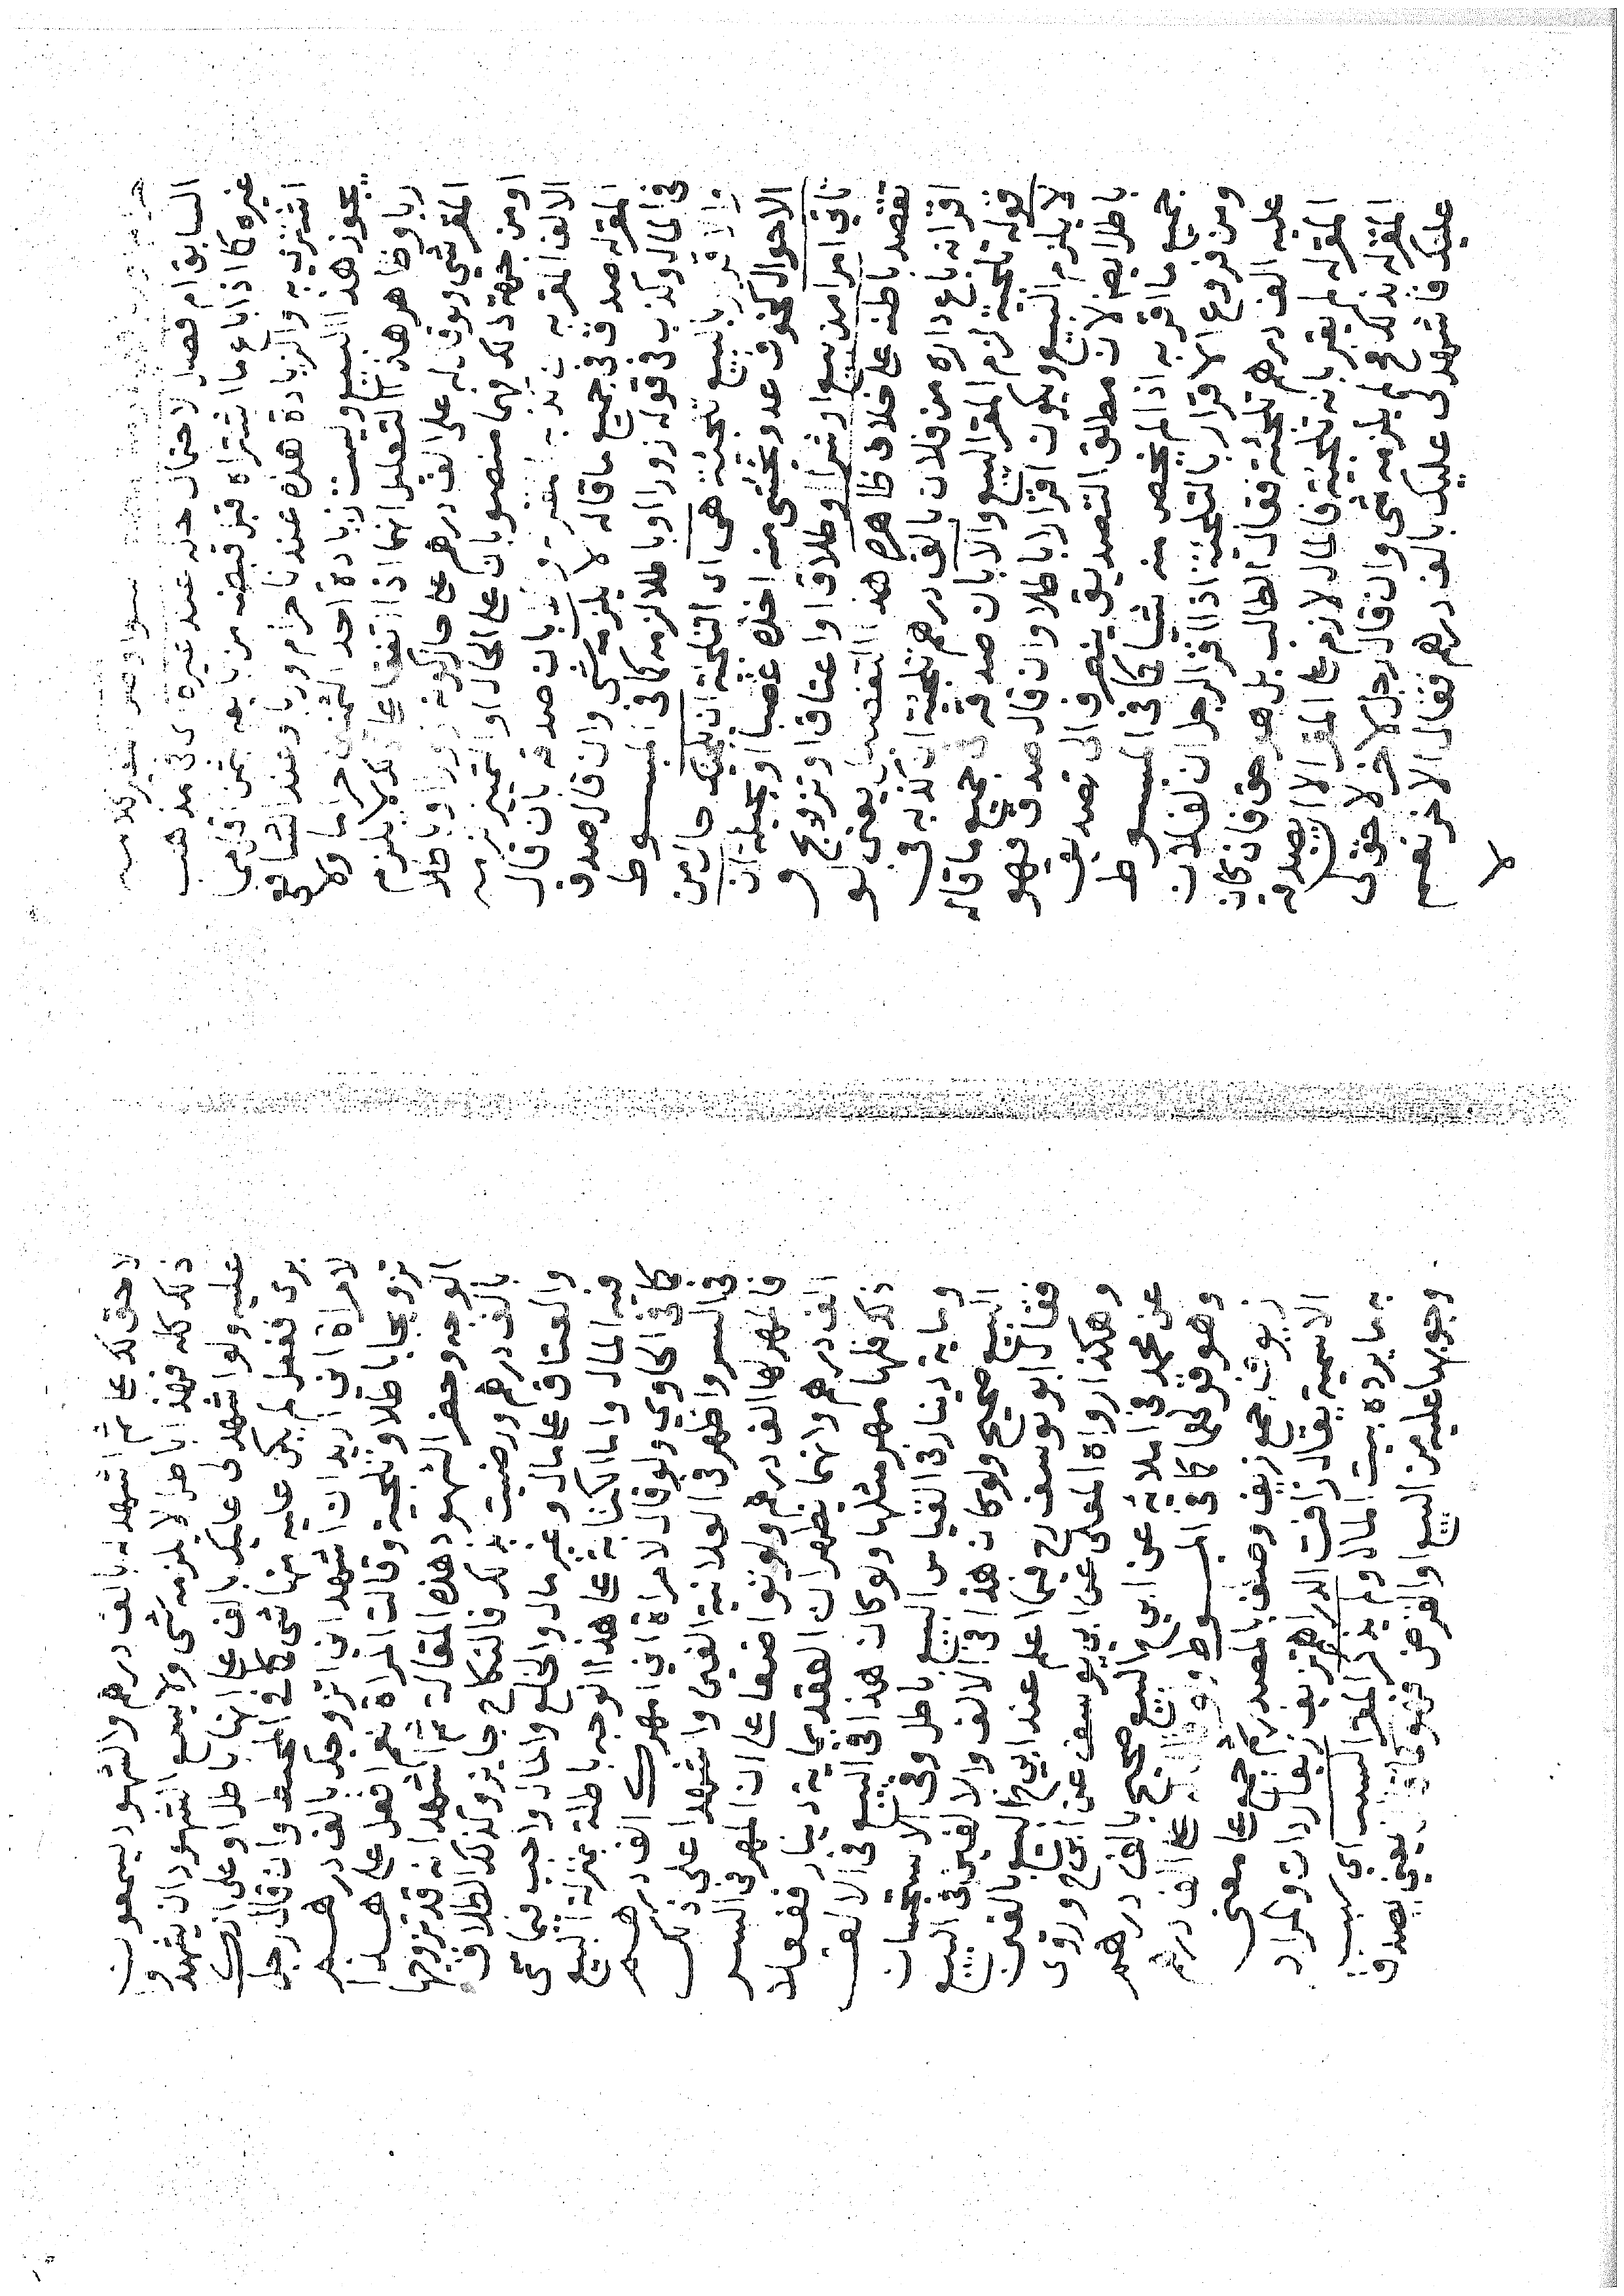 السابق ام فصل لاحتمال حله عند غيره ى فى مذهب
غيره كما اذا باع ما اشتراه قبل قبضه من بايعه بثمن اقل مما
اشتري به والزيادة هذه عندنا حرام وربا وعند الشافعى
يجوز هذا البيع وليست زيادة احد الثمنين حراما ولا
ربا وظاهر هذا التعليل انهما اذا اتفقا على ذلك لا يلزم
المقر شي ولو قال له على الف درهم على حال كونه زورا وباطلا
او من جهة ذلك فهما منصوبان على الحال او التمييز لزمه
الالف المقر به ان كذبه المقر له والا بان صدقه بان قال
المقر له صدق فى جميع ما قاله لا يلزمه شى وان قال صدق
فى المال وكذب فى قوله زورا او باطلا لزمه كما فى المبسوط
والاقرار بالبيع تلجئة هى اى التلجئة ان يلجئك حال من
الاحوال كخوف عدو يخشى منه اخذه غصبا او بحيلة ان
تاتى امرا من بيع او شرا او طلاق او عتاق او تزويج و
تقصد باطنه على خلاف ظاهره هذا التفصيل يعنى لو
اقر انه باع داره من فلان بالف درهم تلجئة ان كذبه فى
قوله تلجئة لزم المقر البيع والا بان صدقه فى جميع ما قاله
لا يلزم البيع ويكون اقرارا باطلا وان قال صدق فهو
باطل ايضا لان مطلق التصديق ينصرف الى تصديق
جميع ما اقر به اذا لم يخص منه شيا كما فى المبسوط
ومن فروع الاقرار بالتلجئة اذا اقر الرجل ان لفلان
عليه الف درهم تلجئة فقال الطالب بل هو حق فان كان
المقر له لم يقر بانه تلجئة فالمال لازم على المقر الا ان يصدقه
المقر له بذلك فح لم يلزمه شى وان قال رجل لاخر لا حق لى
عليك فاشهد لى عليك بالف درهم فقال الاخر نعم
لا
لا حق لك على ثم اشهد له بالف درهم والشهود يسمعون
ذلك كله فهذا باطل لا يلزمه شى ولا يسع الشهود ان يشهدوا
عليه ولو اشهد لى عليك بالف على انها باطل او على انك
برى ففعل لم يكن عليه منها شى كما فى المحيط وان قال رجل
لامراة انى اريد ان اشهد انى اتزوجك بالف درهم
تزويجا باطلا وتلجية وقالت المراة نعم افعل على هذا
الوجه وحضر الشهود هذه المقالة ثم اشهد انه قد تزوجها
بالف درهم ورضيت بذلك فالنكاح جايز وكذلك الطلاق
والعتاق على مال وغير مال والخلع والمال واجب فيما سمى
فيه المال واما الكتابة على هذا الوجه باطلة بمنزلة البيع
كما فى الحاوي ولو قال لامراة اني امهرك الف درهم
فى السر واظهر فى العلانية الفين واشهد على ذلك
فالمهر لها الف درهم ولو تواضعا على ان المهر فى السر
الف درهم وانما يظهر ان العقد بماية دينار ففعلا
ذلك فلها مهر مثلها ولو كان هذا فى البيع فى الالف
وماية دينار فى القياس البيع باطل وفى الاستحسان
البيع صحيح ولو كان هذا فى الالف والالفين فى البيع
فقال ابو يوسف رح فيما اعلم عند ابي ح البيع بالفين
وهكذا رواه المعلى عن ابي يوسف عن ابي ح وروى
عن محمد فى املائه عن ابي ح البيع صحيح بالف درهم
وهو قولهما كما فى المبسوط على الف درهم
زيوف جمع زيف وصف بالمصدر ثم جمع على معنى
الاسمية يقال زافت الدراهم تزيف زيفا ردات والمراد
به ما يرده بيت المال ولم يذكر المقر السبب اي سبب
وجوبها عليه من البيع او القرض فهو كما قال يعني يصدق